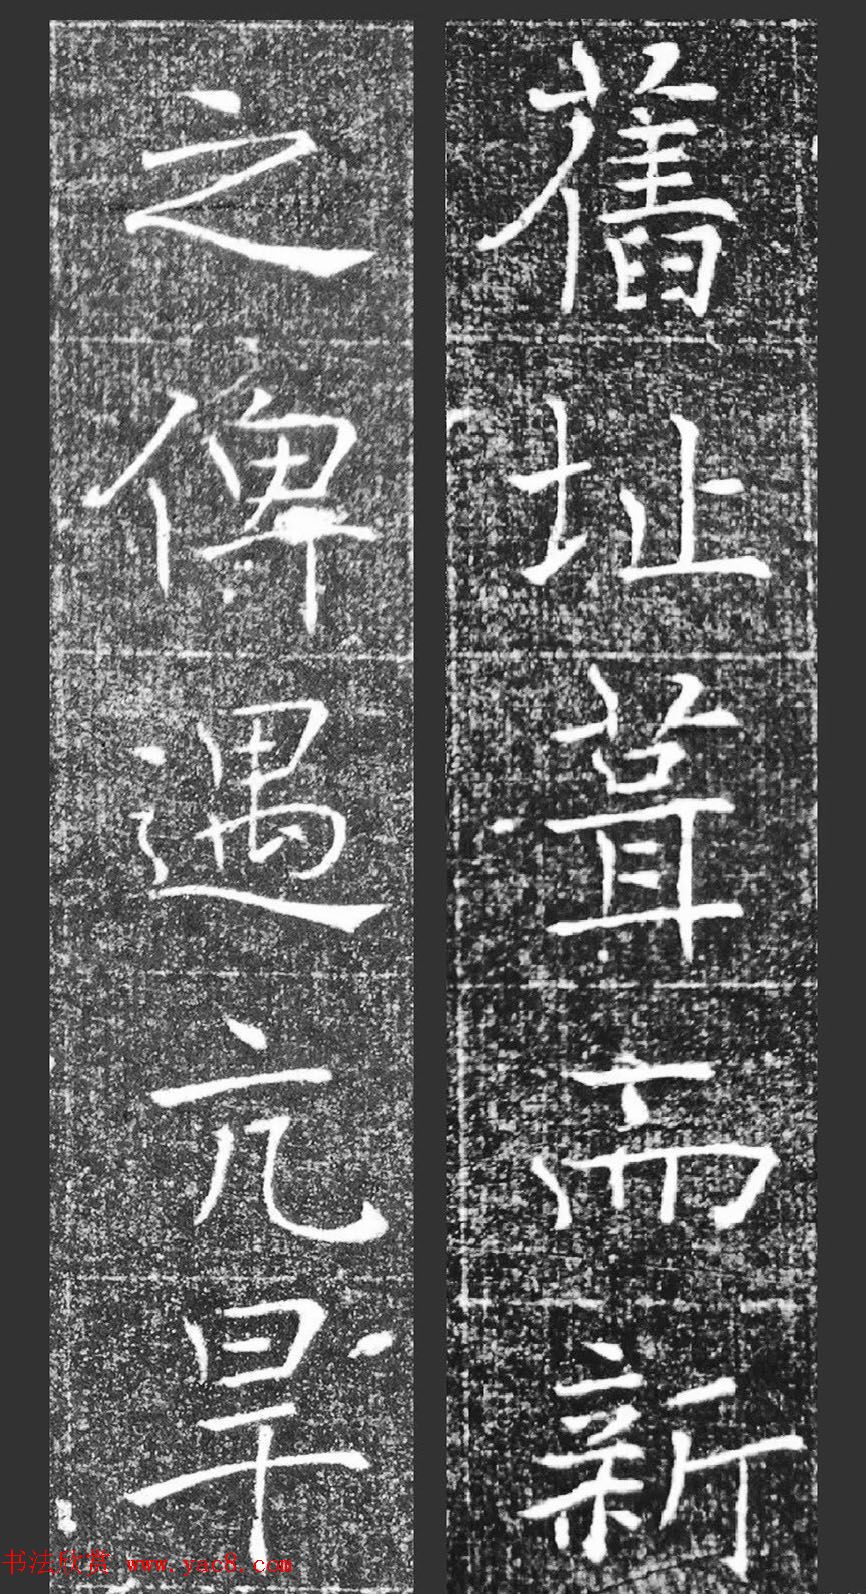 舊址葺而新
之俾遇亢旱
书法欣赏 www.yac8.com